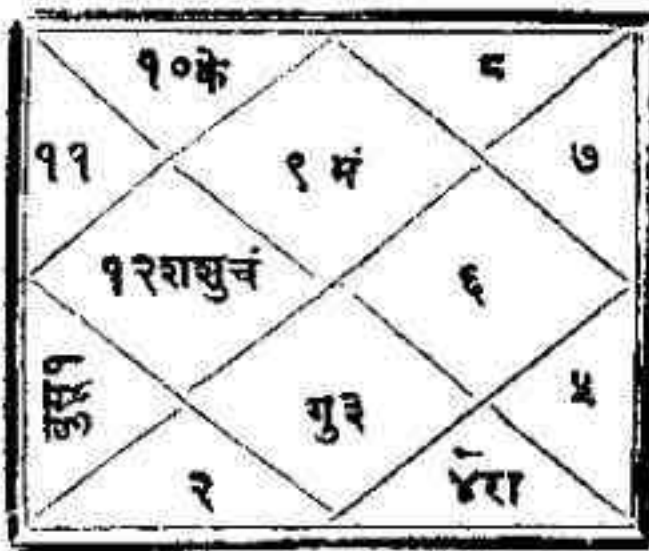 १०के
८
११
९ मं
७
१२शशुचं
६
बुसू१
गु३
५
२
४रा